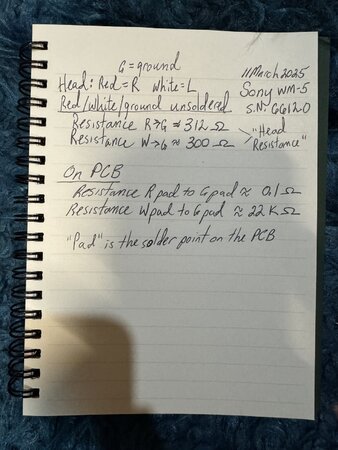 G = ground
11 March 2025
Head: Red = R White = L
Sony WM-5
Red/White/ground unsoldered
S.N. 66120
Resistance R→G ≈ 312 Ω
Resistance W→G ≈ 300 Ω
"Head Resistance"
On PCB
Resistance R pad to G pad ≈ 0.1 Ω
Resistance W pad to G pad ≈ 22 K Ω
"Pad" is the solder point on the PCB